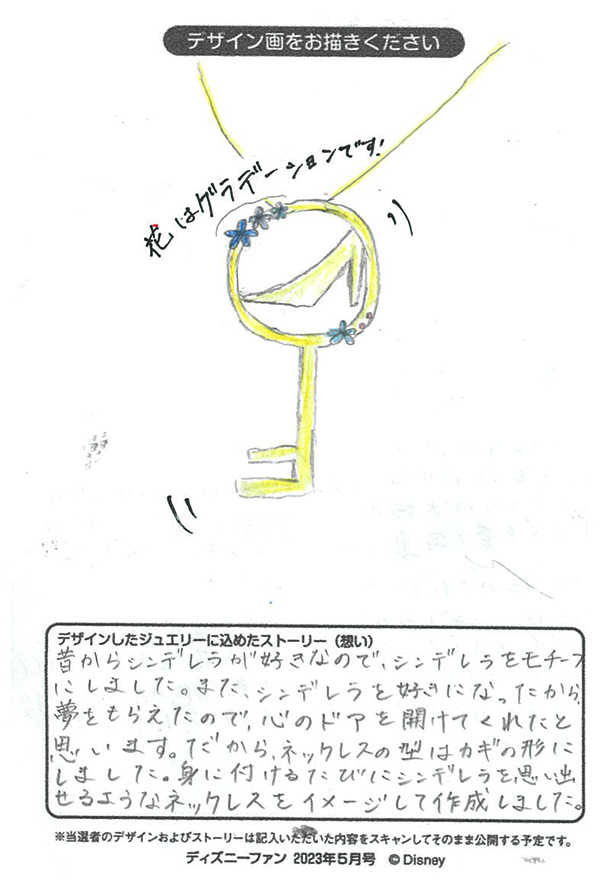 デザイン画をお描きください
花はグラデーションです!
デザインしたジュエリーに込めたストーリー(想い)
昔からシンデレラが好きなので、シンデレラをモチーフ
にしました。また、シンデレラを好きになったから、
夢をもらえたので、心のドアを開けてくれたと
思います。だから、ネックレスの型はカギの形に
しました。身に付けるたびにシンデレラを思い出
せるようなネックレスをイメージして作成しました。
※当選者のデザインおよびストーリーは記入いただいた内容をスキャンしてそのまま公開する予定です。
ディズニーファン 2023年5月号 ©Disney